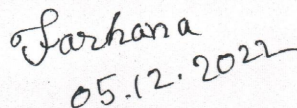 Farhana
05.12.2022